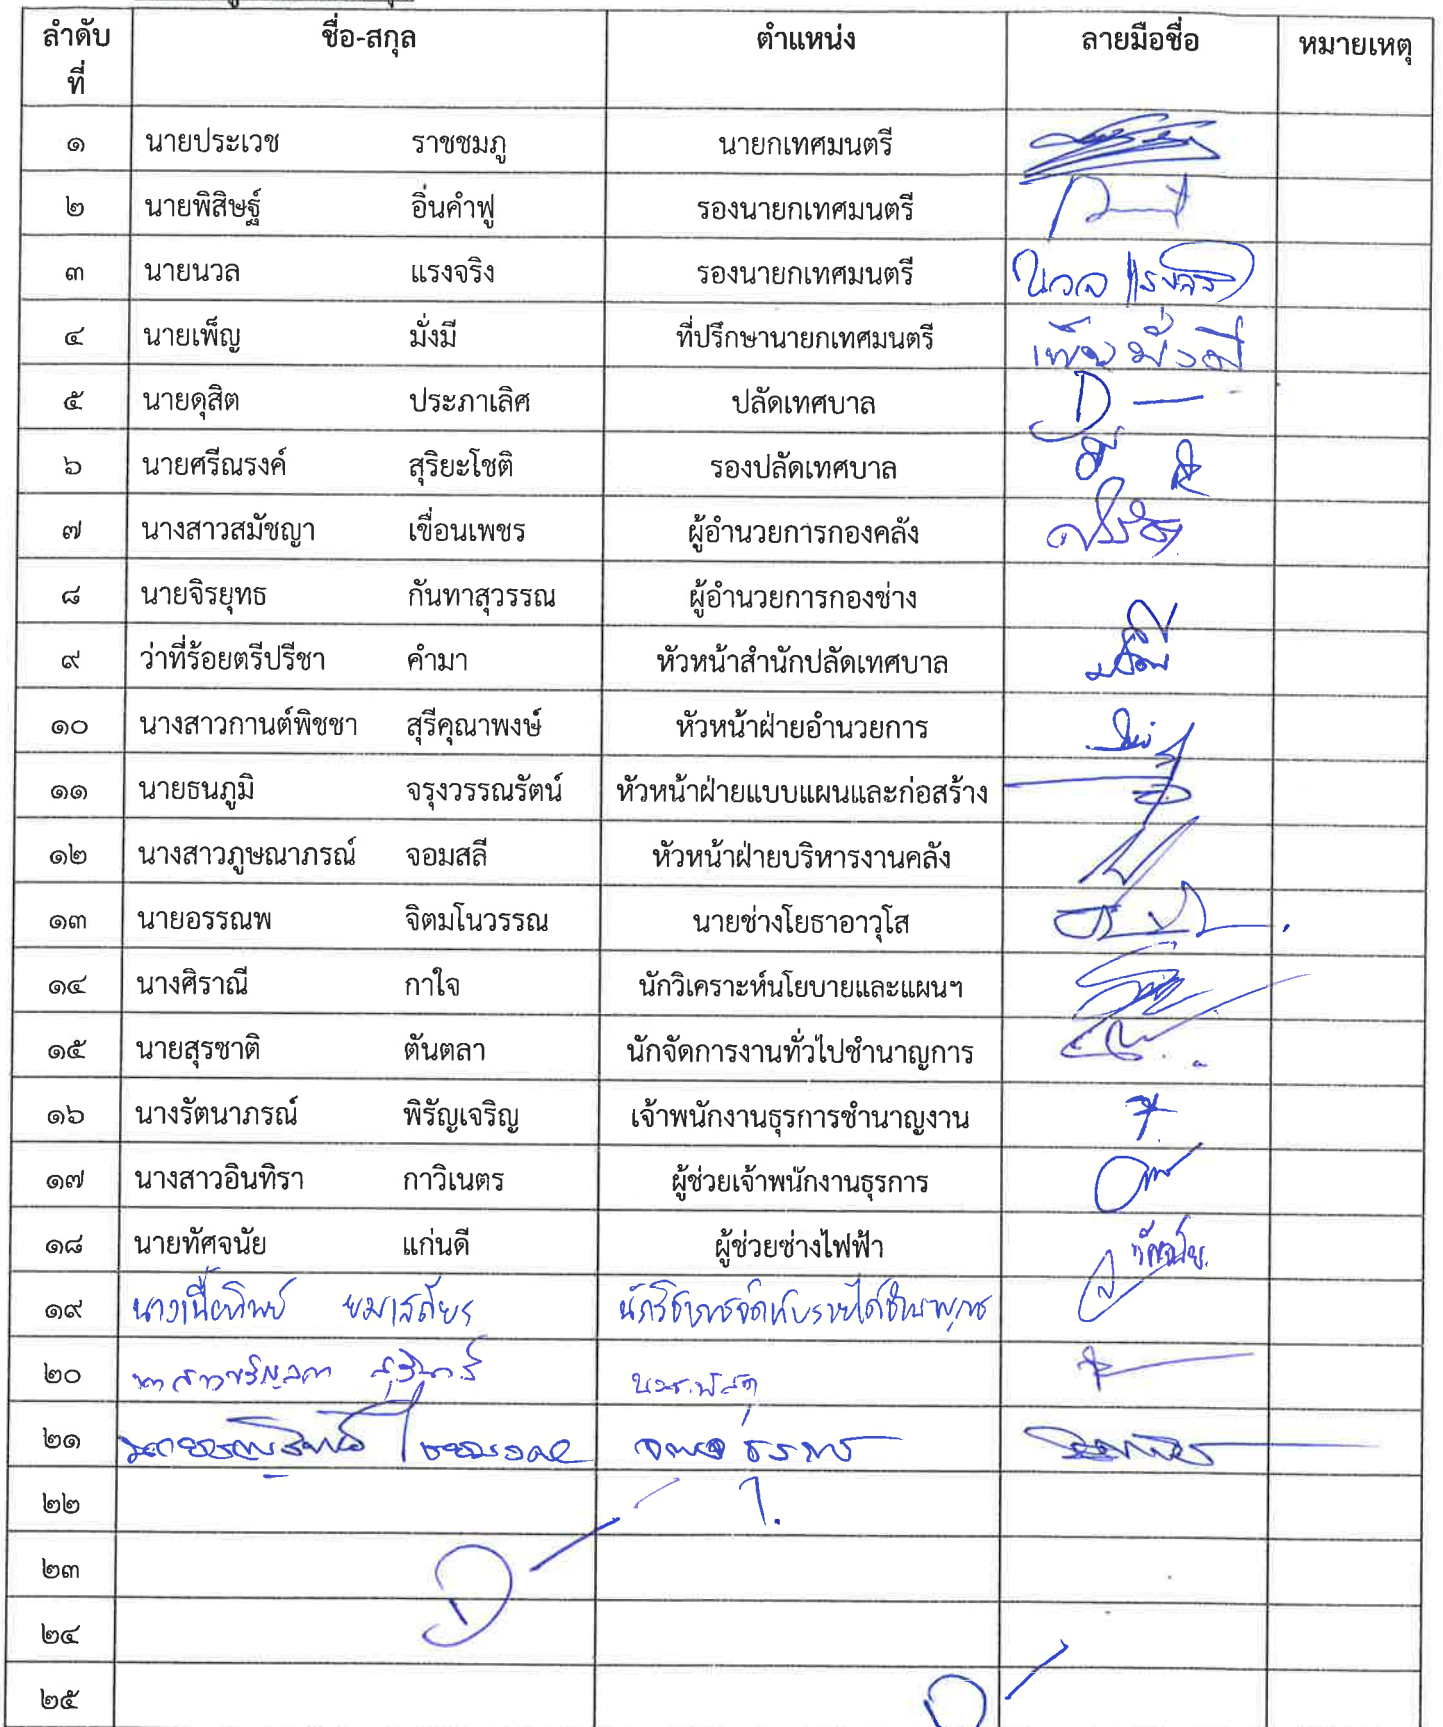 ลำดับ ชื่อ-สกุล ตำแหน่ง ลายมือชื่อ หมายเหตุ
ที่
๑ นายประเวช ราชชมภู นายกเทศมนตรี
๒ นายพิสิษฐ์ อิ่นคำฟู รองนายกเทศมนตรี
๓ นายนวล แรงจริง รองนายกเทศมนตรี นวล แรงจริง
๔ นายเพ็ญ มั่งมี ที่ปรึกษานายกเทศมนตรี เพ็ญ มั่งมี
๕ นายดุสิต ประภาเลิศ ปลัดเทศบาล
๖ นายศรีณรงค์ สุริยะโชติ รองปลัดเทศบาล
๗ นางสาวสมัชญา เขื่อนเพชร ผู้อำนวยการกองคลัง
๘ นายจิรยุทธ กันทาสุวรรณ ผู้อำนวยการกองช่าง
๙ ว่าที่ร้อยตรีปรีชา คำมา หัวหน้าสำนักปลัดเทศบาล
๑๐ นางสาวกานต์พิชชา สุรีคุณาพงษ์ หัวหน้าฝ่ายอำนวยการ
๑๑ นายธนภูมิ จรุงวรรณรัตน์ หัวหน้าฝ่ายแบบแผนและก่อสร้าง
๑๒ นางสาวภูษณาภรณ์ จอมสลี หัวหน้าฝ่ายบริหารงานคลัง
๑๓ นายอรรณพ จิตมโนวรรณ นายช่างโยธาอาวุโส
๑๔ นางศิราณี กาใจ นักวิเคราะห์นโยบายและแผนฯ
๑๕ นายสุรชาติ ตันตลา นักจัดการงานทั่วไปชำนาญการ
๑๖ นางรัตนาภรณ์ พิรัญเจริญ เจ้าพนักงานธุรการชำนาญงาน
๑๗ นางสาวอินทิรา กาวิเนตร ผู้ช่วยเจ้าพนักงานธุรการ
๑๘ นายทัศจนัย แก่นดี ผู้ช่วยช่างไฟฟ้า ทัศจนัย
๑๙ นางเนื้อทิพย์ ยมเสถียร นักวิชาการจัดเก็บรายได้ชำนาญการ
๒๐ นางสาว
๒๑ ธุรการ
๒๒
๒๓
๒๔
๒๕